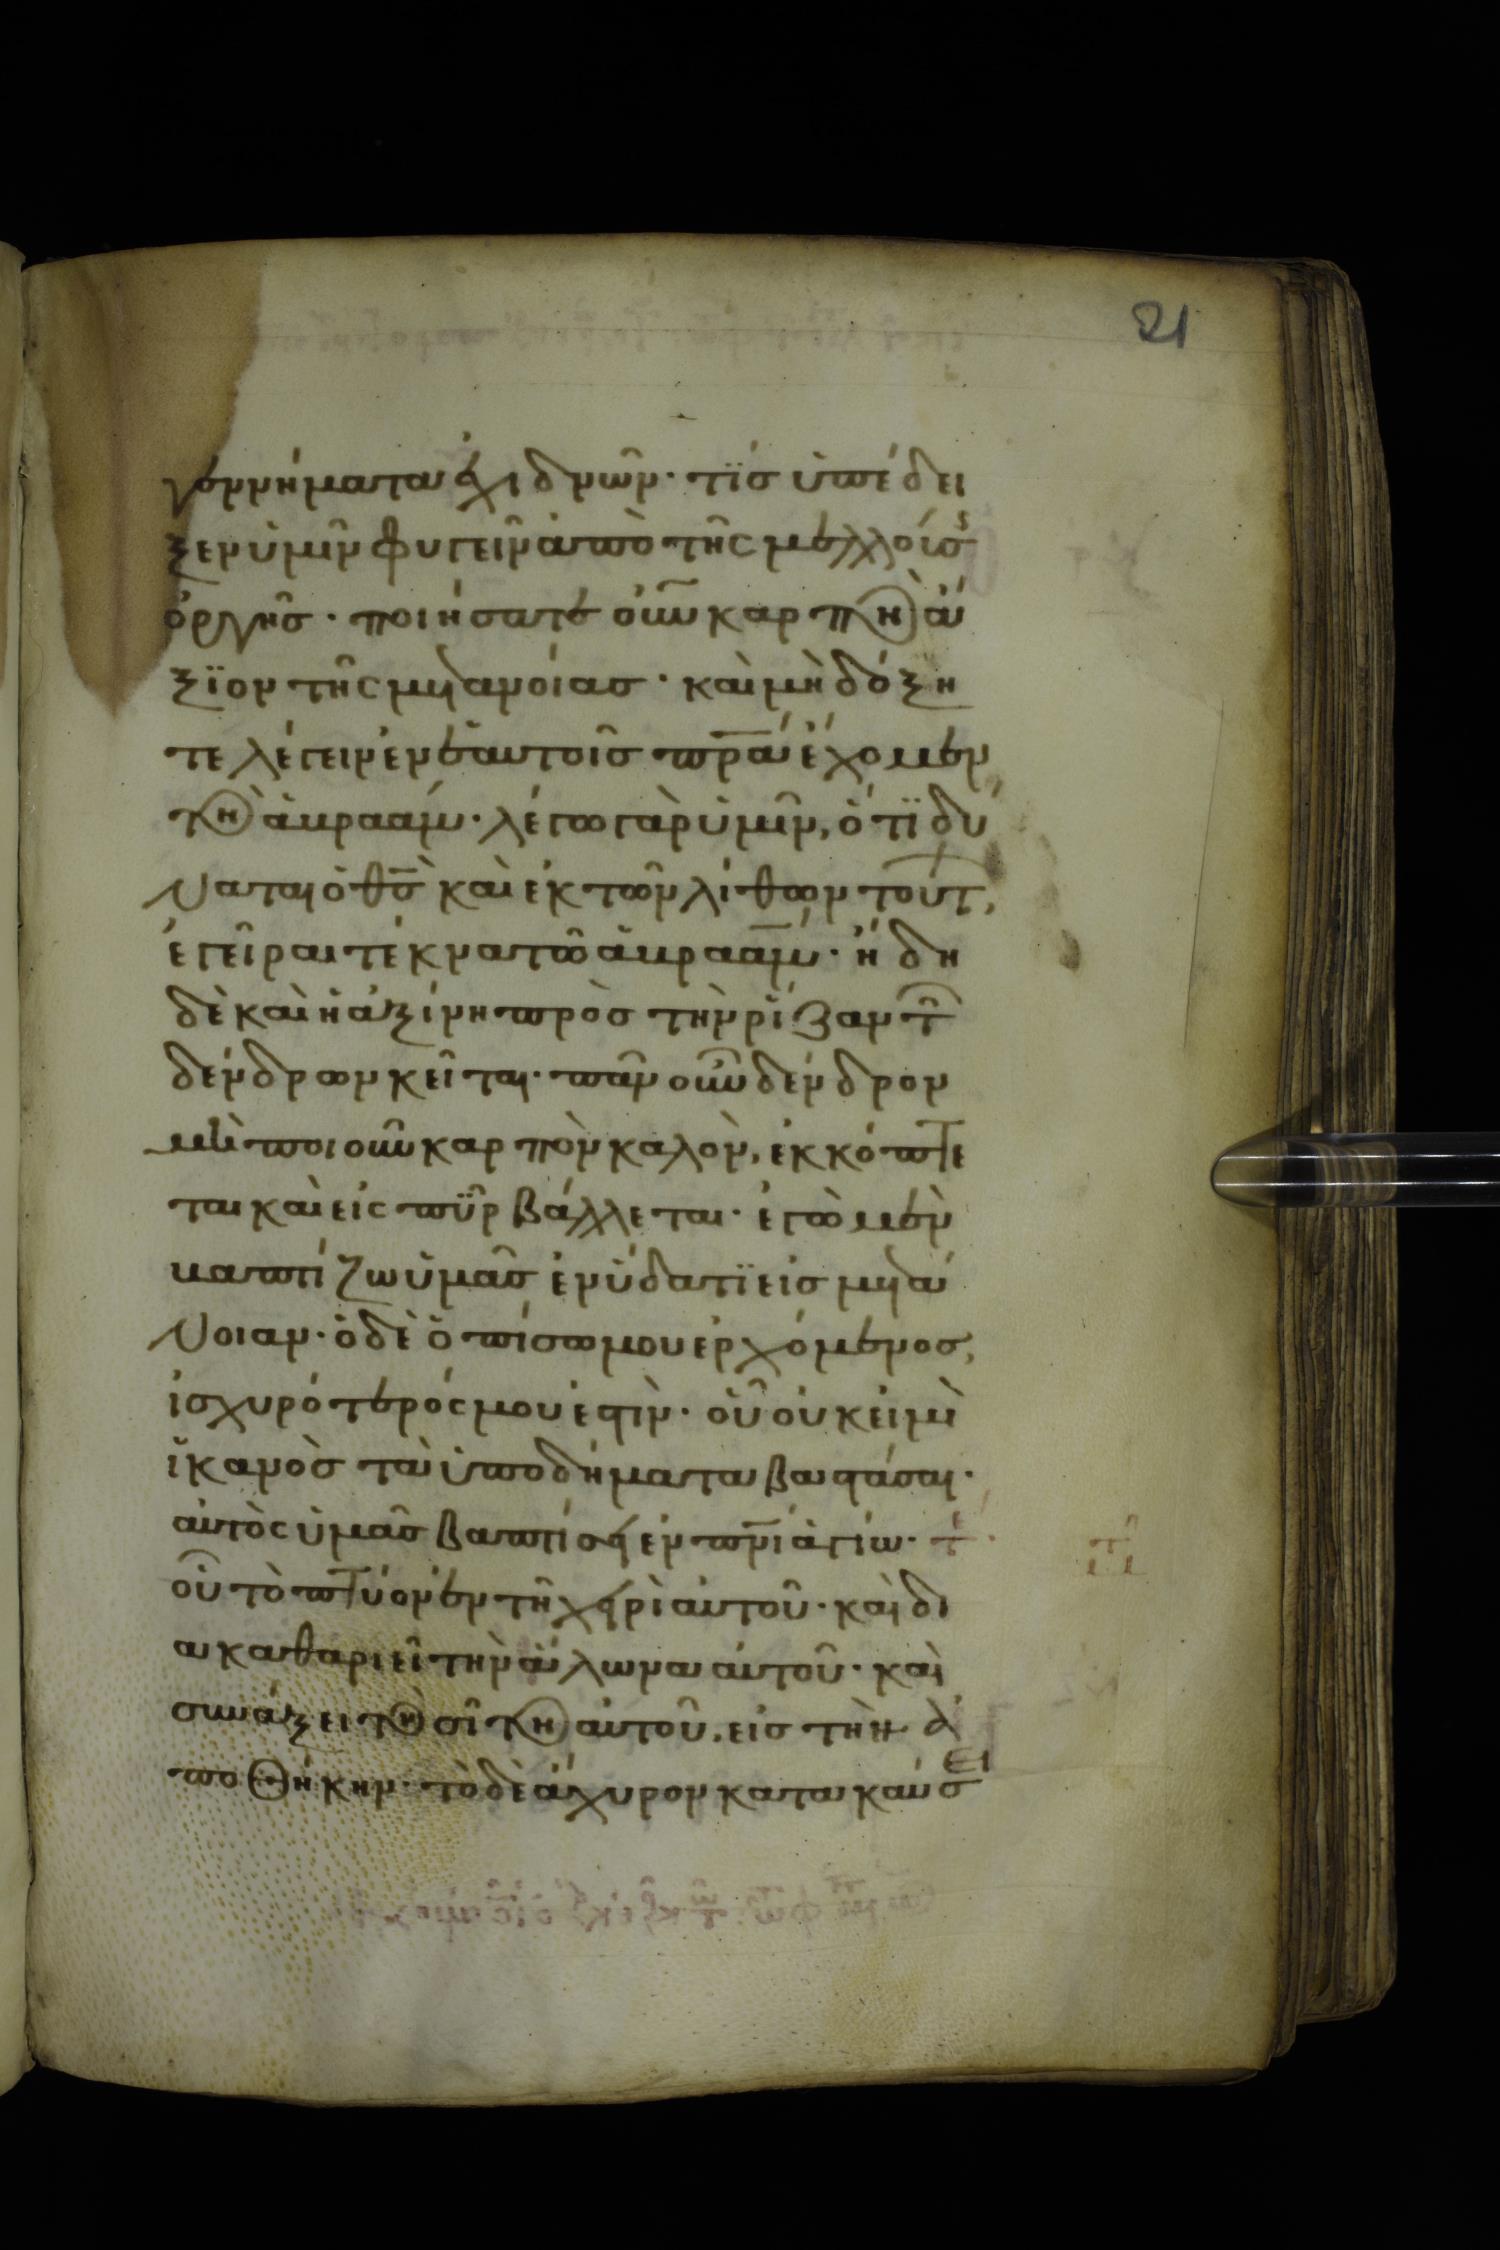 21
γεννήματα ἐχιδνῶν· τίς ὑπέδει
ξεν ὑμῖν φυγεῖν ἀπὸ τῆς μελλούσ
ὀργῆς· ποιήσατε οὖν καρπὸν ἄ
ξϊον τῆς μετανοίας· καὶ μὴ δόξη
τε λέγειν ἐν ἑαυτοῖς πρ̅α ἔχομεν
τὸν ἀβραάμ· λέγω γὰρ ὑμῖν, ὅτϊ δύ
ναται ὁ θ̅ς καὶ ἐκ τῶν λίθων τούτ,
ἐγεῖραι τέκνα τῶ ἀβραάμ· ἤδη
δὲ καὶ ἡ ἀξίνη πρὸς τὴν ῥίζαν τ̑
δένδρων κεῖται· πᾶν οὖν δένδρον
μὴ ποιοῦν καρπὸν καλὸν, ἐκκόπτε
ται καὶ εἰς πῦρ βάλλεται· ἐγὼ μὲν
βαπτίζω ὑμᾶς ἐν ὕδατϊ εἰς μετά
νοιαν· ὁ δὲ ὀπίσω μου ἐρχόμενος,
ἰσχυρότερός μου ἐστὶν· οὗ οὐκ εἰμὶ
ἱκανὸς τὰ ὑποδήματα βαστάσαι·
αὐτὸς ὑμᾶς βαπτίσει ἐν πν̅ι ἁγίω·
οὗ τὸ πτύον ἐν τῆ χειρὶ αὐτοῦ· καὶ δι
ακαθαριεῖ τὴν ἅλωνα αὐτοῦ· καὶ
συνάξει τὸν σῖτον αὐτοῦ, εἰς τὴν ἀ
ποθήκην· τὸ δὲ ἄχυρον κατακαύσει